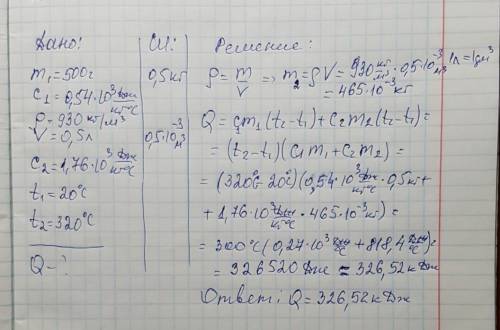 Дано:
m₁=500г
c₁=0,54·10³ Дж/кг°С
ρ=930 кг/м³
V=0,5л
c₂=1,76·10³ Дж/кг°С
t₁=20°С
t₂=320°С
Q-?
СИ:
0,5кг
0,5·10⁻³ м³
Решение:
ρ=m/V => m₂=ρV=930 кг/м³·0,5·10⁻³ м³=
1л=1дм³
=465·10⁻³ кг
Q=c₁m₁(t₂-t₁)+c₂m₂(t₂-t₁)=
=(t₂-t₁)(c₁m₁+c₂m₂)=
=(320°С-20°С)(0,54·10³ Дж/кг°С·0,5кг+
+1,76·10³ Дж/кг°С·465·10⁻³кг)=
=300°С(0,27·10³ Дж/°С+818,4 Дж/°С)=
=326520Дж=326,52кДж
Ответ: Q=326,52кДж